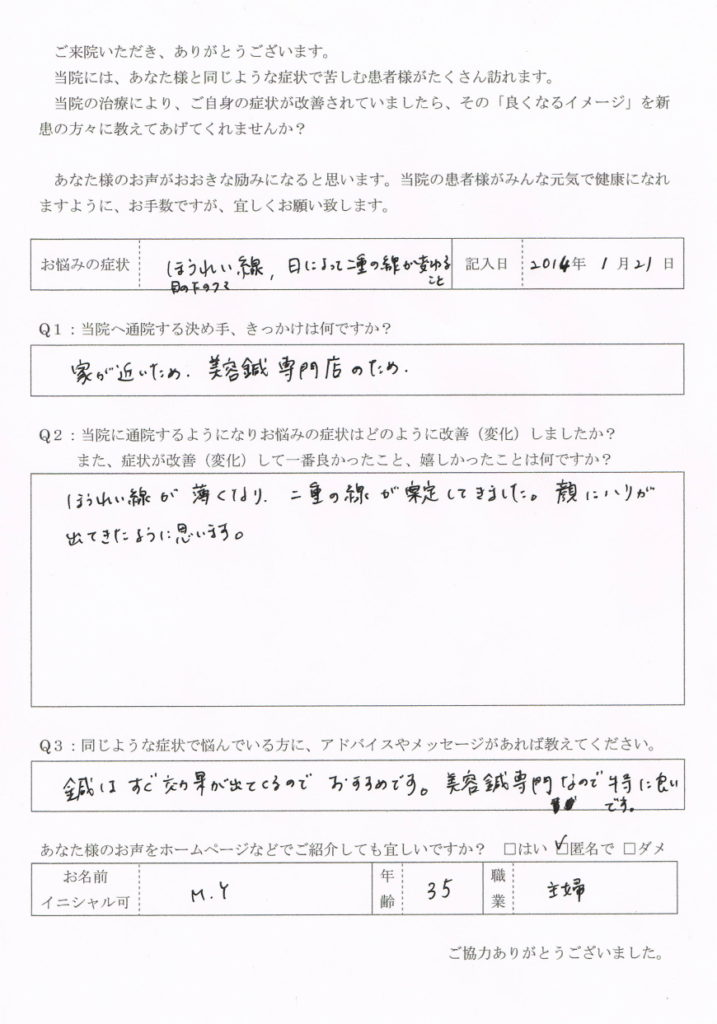 ご来院いただき、ありがとうございます。
当院には、あなた様と同じような症状で苦しむ患者様がたくさん訪れます。
当院の治療により、ご自身の症状が改善されていましたら、その「良くなるイメージ」を新
患の方々に教えてあげてくれませんか？
あなた様のお声がおおきな励みになると思います。当院の患者様がみんな元気で健康になれ
ますように、お手数ですが、宜しくお願い致します。
お悩みの症状 ほうれい線, 日によって二重の線が変わる 記入日 2014年 1月21日
目の下のクマ こと
Q1：当院へ通院する決め手、きっかけは何ですか？
家が近いため. 美容鍼専門店のため.
Q2：当院に通院するようになりお悩みの症状はどのように改善（変化）しましたか？
また、症状が改善（変化）して一番良かったこと、嬉しかったことは何ですか？
ほうれい線が薄くなり. 二重の線が安定してきました。顔にハリが
出てきたように思います。
Q3：同じような症状で悩んでいる方に、アドバイスやメッセージがあれば教えてください。
鍼はすぐ効果が出てくるのでおすすめです。美容鍼専門なので特に良い
です。
あなた様のお声をホームページなどでご紹介しても宜しいですか？ □はい ☑匿名で □ダメ
お名前 M.Y 年 35 職 主婦
イニシャル可 齢 業
ご協力ありがとうございました。